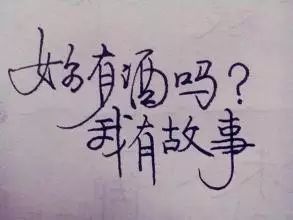 好有酒吗?
我有故事